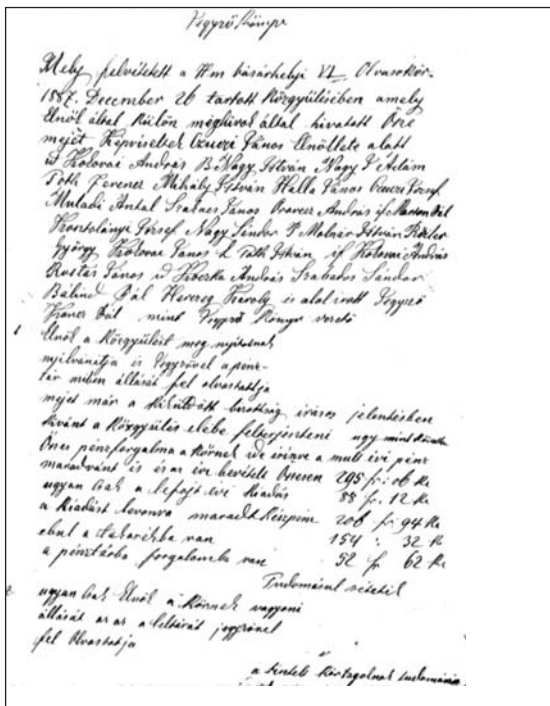 Jegyző Könyv
Mely felvétetett a Hm vásárhelyi VI Olvasókör
1887. December 26 tartott Közgyülésében amely
Elnök által külön meghivok által hivatott Össze
mejet Képviseltek Czuczi János Elnöklete alatt
id Kolovai András B Nagy István Nagy Ádám
Tóth Ferencz Mihály István Halla János Czuczi József
Muladi Antal Szabner János Oravecz András if Marton Pál
Nagy Sándor Molnár István
György János Tóth István if András
Rostás János id András Szabados Sándor
Bálind Pál Herczeg Károly és alol irott Jegyző
Pál mint Jegyző Könyv vezető
1 Elnök a Közgyülést meg nyitotnak
nyilvánitja is Jegyzővel a pénz-
tár miben állását fel olvastatja
mejet már a kiküldött bizottság irásos jelentésben
kivánt a Közgyülés elébe felterjeszteni ugy mint
Öszes pénzforgalma a Körnek ide a mult évi pénz
maradvánt is és az évi bevétele Öszesen 295 fr: 06 Kr
ugyan csak a lefojt évi Kiadás 88 fr. 12 Kr
a Kiadást levonva maradt Készpénz 206 fr 94 Kr
ebül a takarékba van 154 : 32 Kr
a pénztárba forgalomba van 52 fr 62 Kr
Tudomásul vétetik
2 ugyan csak Elnök a Körnek vagyoni
állását az az a leltárát jegyzővel
fel Olvastatja
a tisztelt Körtagoknak tudomására